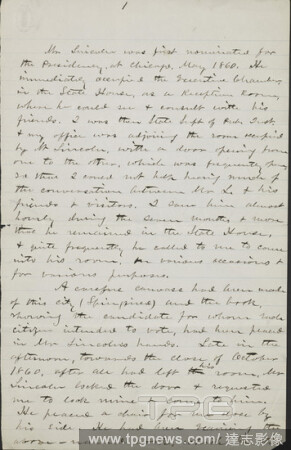 1
Mr Lincoln was first nominated for
the Presidency, at Chicago, May 1860. He
immediately occupied the Executive Chamber
in the State House, as a Reception Room,
where he could see & consult with his
friends. I was then State Supt of Pub. Inst.
& my office was adjoining the room occupied
by Mr Lincoln, with a door opening from
one to the other, which was frequently open,
so that I could not help hearing much of
the conversation between Mr L. & his
friends & visitors. I saw him almost
hourly during the seven months & more
that he remained in the State House,
& quite frequently he called to me to come
into his room, on various occasions &
for various purposes.
A careful canvass had been made
of this city (Springfield) and the book,
showing the candidate for whom each
citizen intended to vote, had been placed
in Mr Lincoln's hands. Late in the
afternoon, towards the close of October
1860, after all had left his room, Mr.
Lincoln locked the door & requested
me to lock mine & come to him.
He placed a chair for me close by
his side. He had been examining the
above
www.tpgnews.com 達志影像